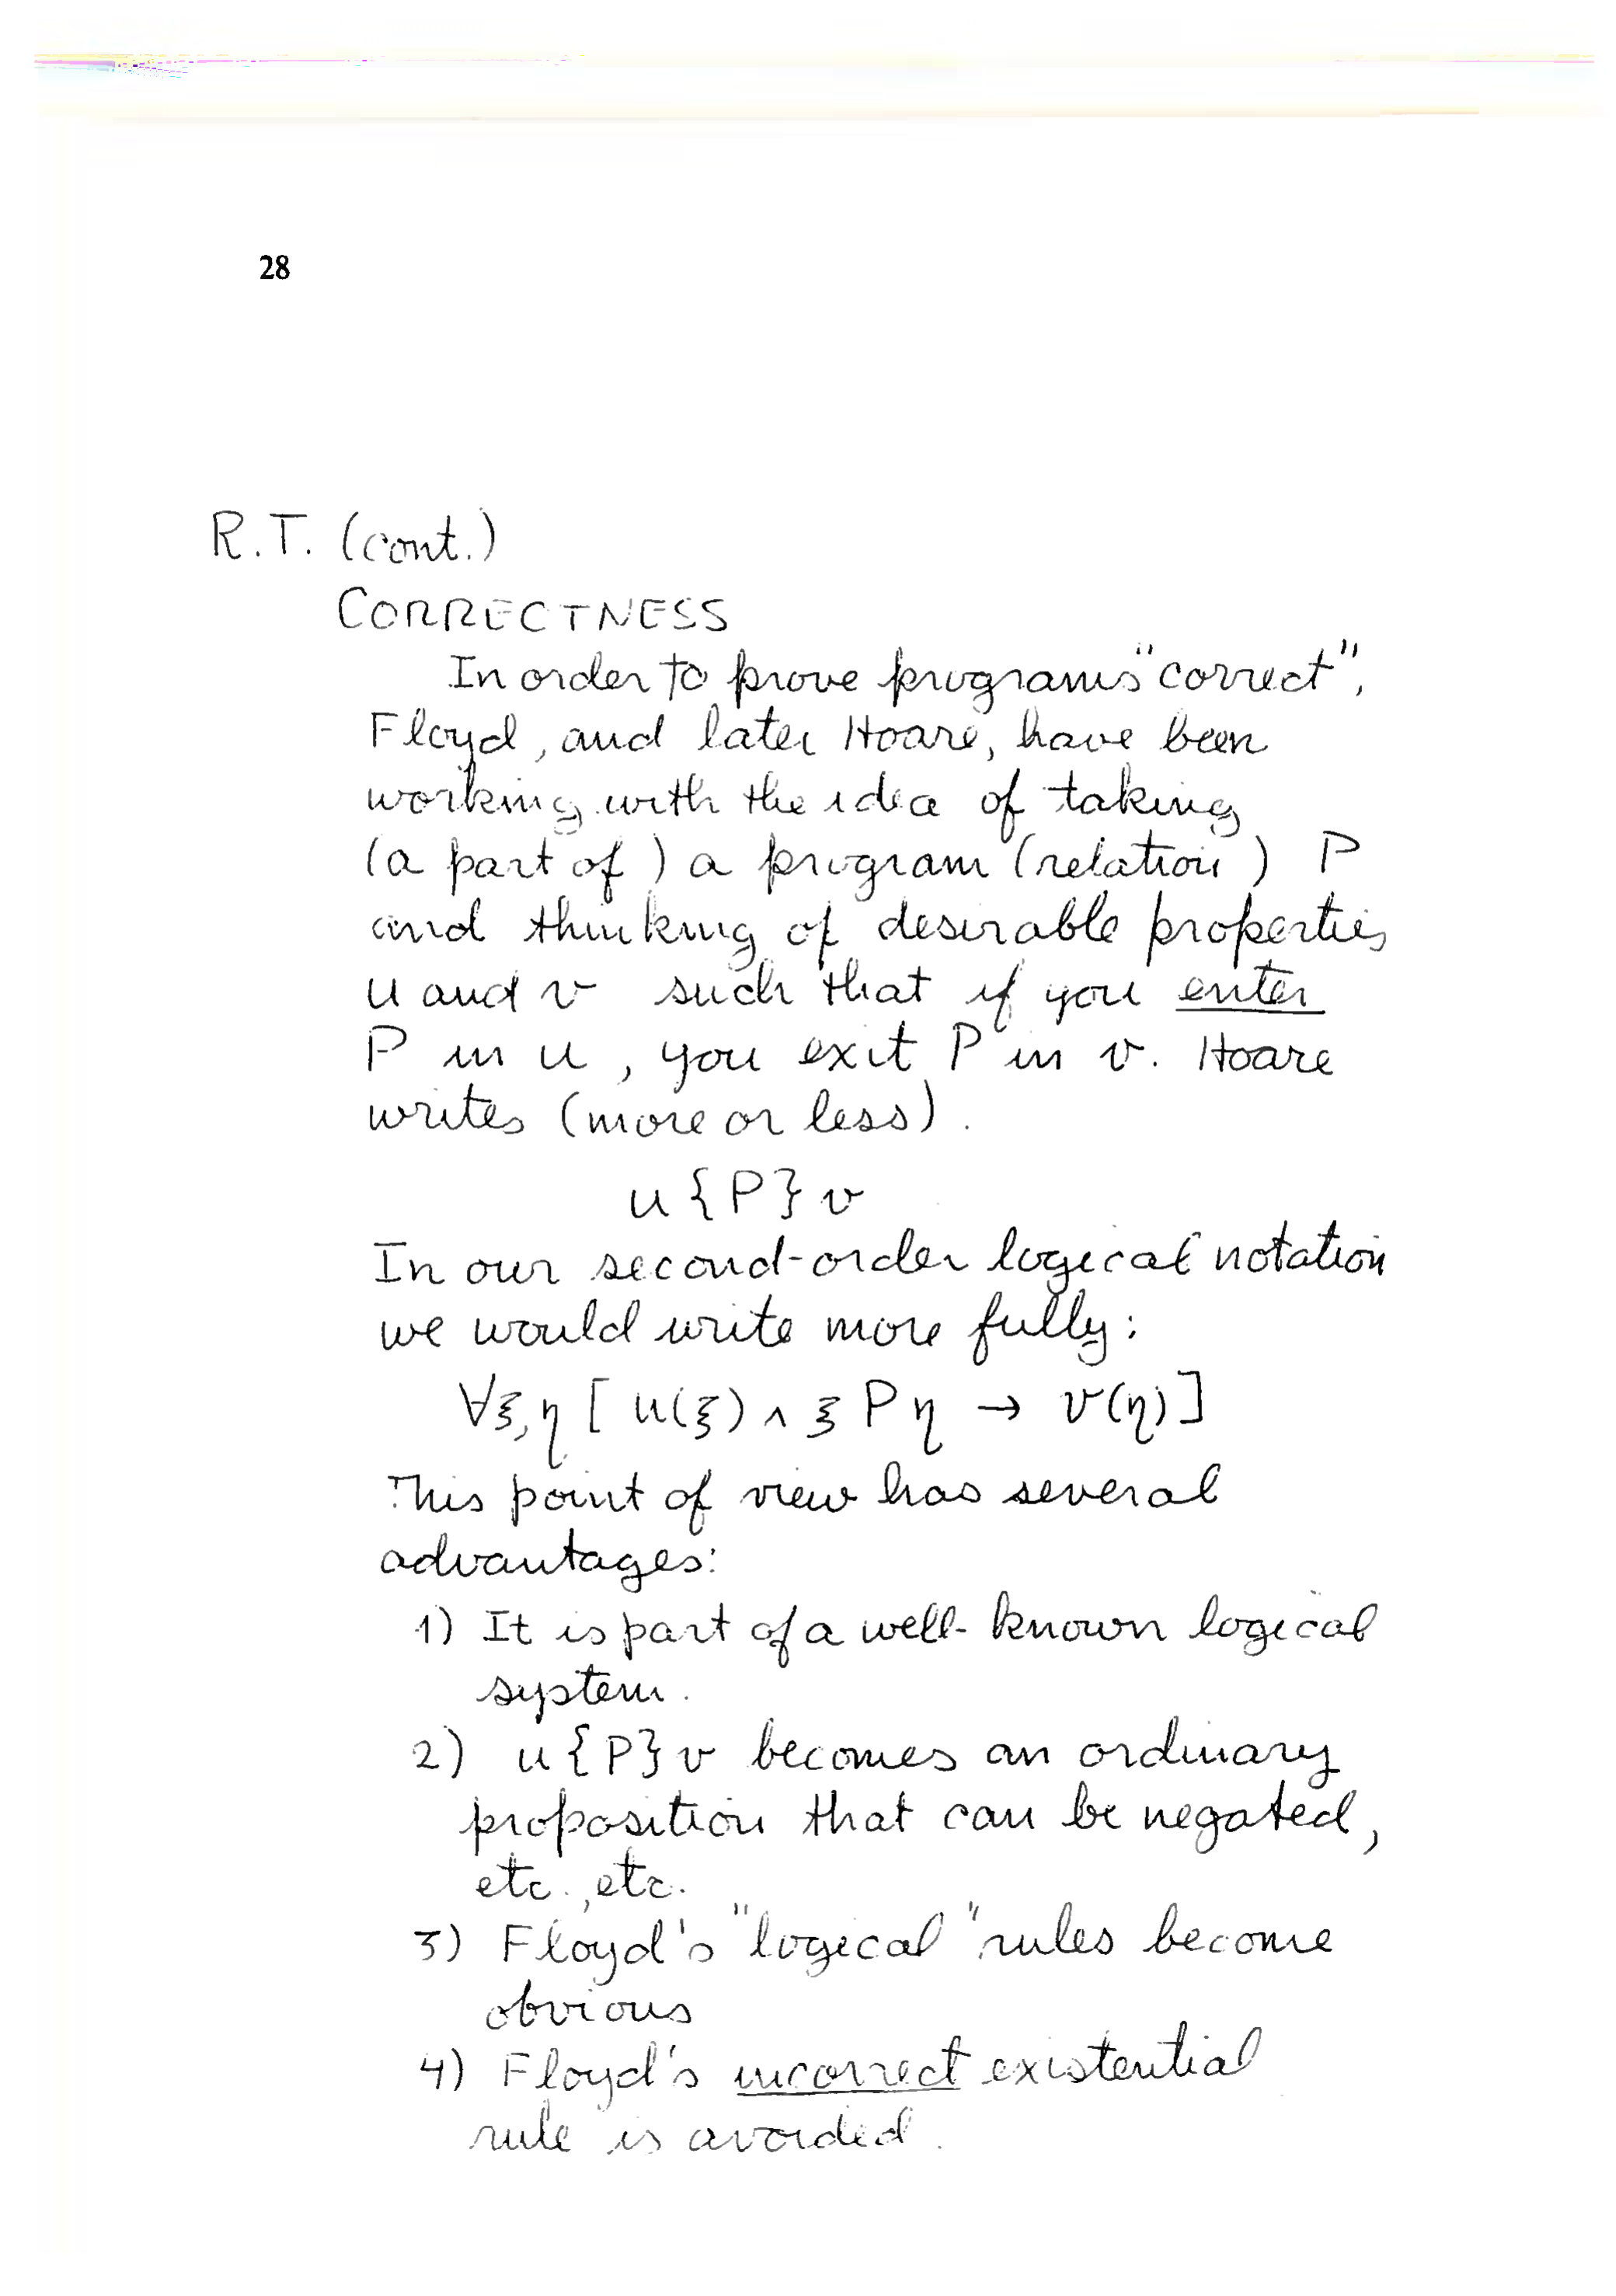 28
R.T. (cont.)
CORRECTNESS
In order to prove programs "correct",
Floyd, and later Hoare, have been
working with the idea of taking
(a part of) a program (relation) P
and thinking of desirable properties
u and v such that if you enter
P in u, you exit P in v. Hoare
writes (more or less).
u {P} v
In our second-order logical notation
we would write more fully:
∀ξ,η [ u(ξ) ∧ ξ P η → v(η) ]
This point of view has several
advantages:
1) It is part of a well-known logical
system.
2) u {P} v becomes an ordinary
proposition that can be negated,
etc., etc.
3) Floyd's "logical" rules become
obvious
4) Floyd's incorrect existential
rule is avoided.